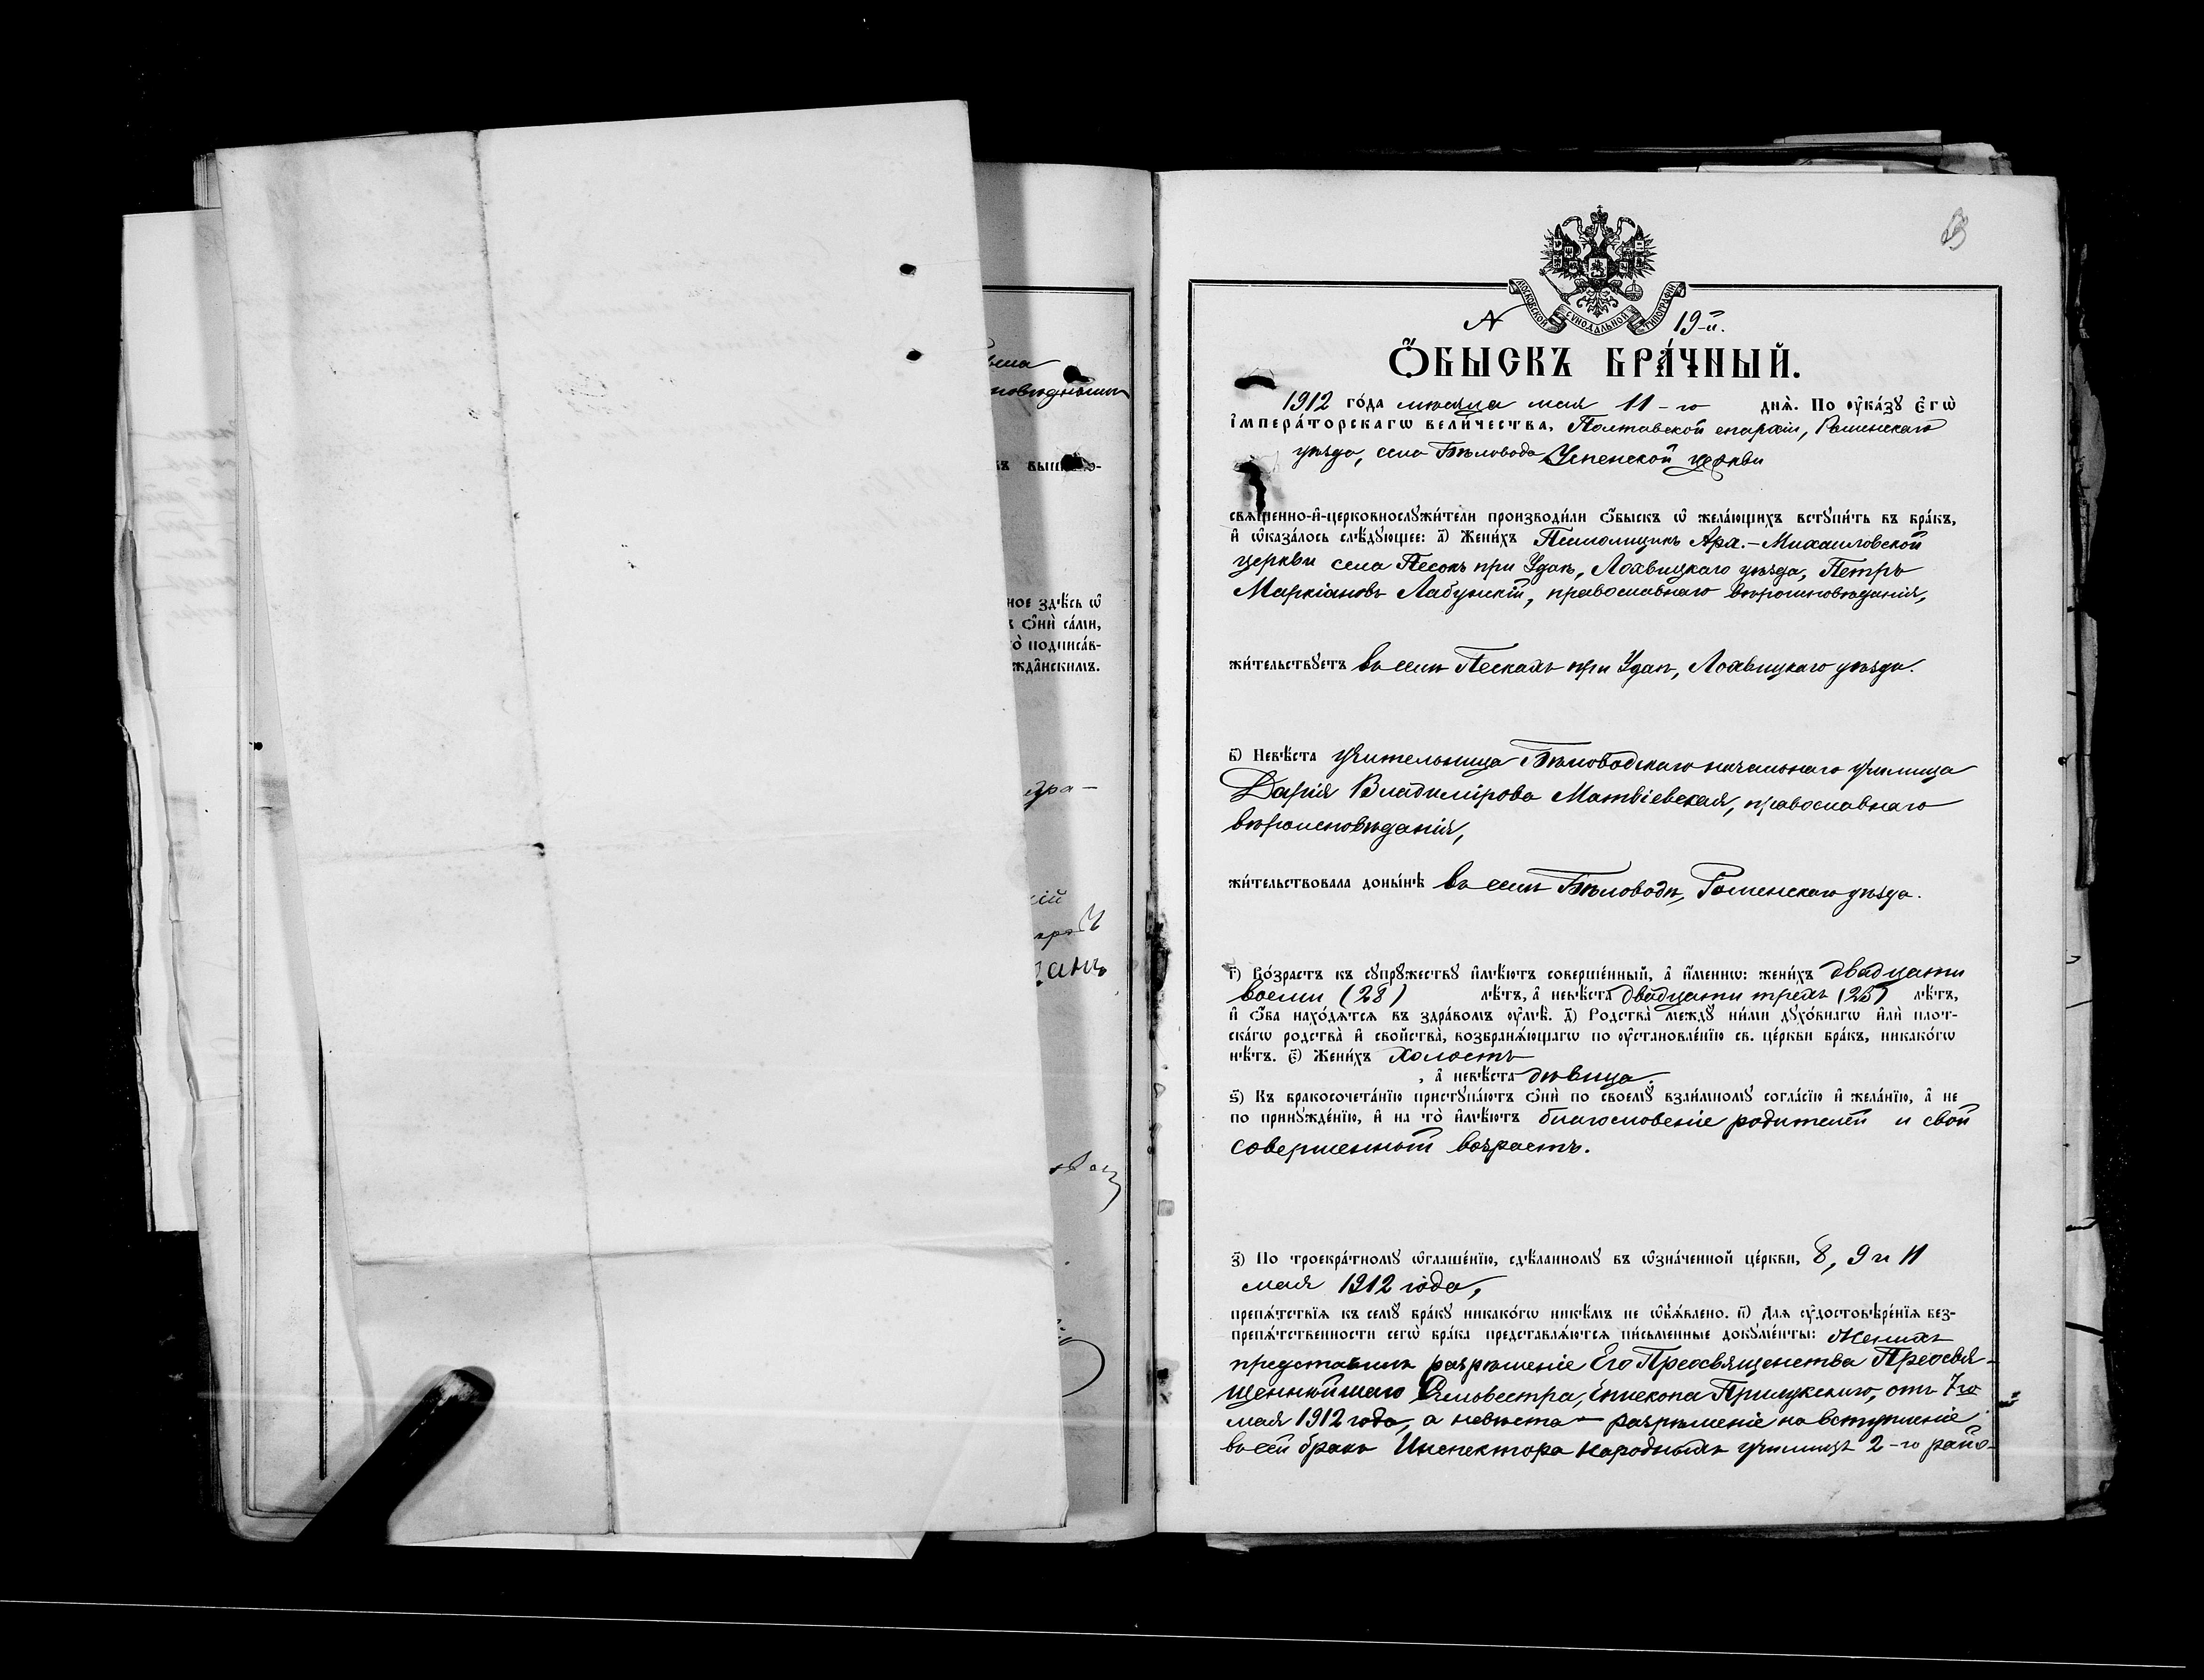 ьма
повѣднымъ
въ выше
ное здѣсь ѡ҆
ѻ҆нѝ са́ми,
то̀ подписа́в-
жда́нскимъ.
кій
МОСКОВСКОЙ СѴНОДАЛЬНОЙ ТИПОГРАФІИ
№ 19-й.
Ѻ҆БЫСКЪ БРА́ЧНЫЙ.
1912 го́да мѣсяца мая 11-го днѧ̀. По ᲂу҆ка́зꙋ Є҆гѡ̀
І҆мпера́торскагѡ вели́чества, Полтавской епархіи, Роменскаго
уѣзда, села Бѣловода Успенской церкви
свѧще́нно-и҆-церковнослꙋжи́тели производи́ли ѻ҆́быскъ ѡ҆ жела́ющихъ встꙋпи́ть въ бра́къ,
и҆ ѡ҆каза́лось слѣ́дꙋющее: а҃) Жени́хъ Псаломщикъ Арх.-Михаиловской
церкви села Песокъ при Удаѣ, Лохвицкаго уѣзда, Петръ
Маркіановъ Лабунскій, православнаго вѣроисповѣданія,
жи́тельствꙋетъ въ селѣ Пескахъ при Удаѣ, Лохвицкаго уѣзда.
в҃) Невѣ́ста учительница Бѣловодскаго начальнаго училища
Дарія Владимірова Матвіевская, православнаго
вѣроисповѣданія,
жи́тельствовала доны́нѣ въ селѣ Бѣловодѣ, Роменскаго уѣзда.
г҃) Во́зрастъ къ сꙋпрꙋ́жествꙋ и҆мѣ́ютъ соверше́нный, а҆ и҆́меннѡ: жени́хъ двадцати
восьми (28) лѣ́тъ, а҆ невѣ́ста двадцати трехъ (23) лѣ́тъ,
и҆ ѻ҆́ба нахо́дѧтсѧ въ здра́вомъ ᲂу҆мѣ̀. д҃) Родства̀ междꙋ̀ ни́ми дꙋхо́внагѡ и҆лѝ плот-
ска́гѡ родства̀ и҆ свойства̀, возбранѧ́ющагѡ по ᲂу҆становле́нїю св. це́ркви бра́къ, никако́гѡ
нѣ́тъ. є҃) Жени́хъ холостъ
, а҆ невѣ́ста дѣвица.
ѕ҃) Къ бракосочета́нїю пристꙋпа́ютъ ѻ҆нѝ по своемꙋ̀ взаи́мномꙋ согла́сїю и҆ жела́нїю, а҆ не
по принꙋжде́нїю, и҆ на то̀ и҆мѣ́ютъ благословеніе родителей и свой
совершенный возрастъ.
з҃) По троекра́тномꙋ ѡ҆глаше́нїю, сдѣ́ланномꙋ въ ѡ҆зна́ченной це́ркви, 8, 9 и 11
мая 1912 года,
препѧ́тствїѧ къ семꙋ̀ бра́кꙋ никако́гѡ никѣ́мъ не ѡ҆бъѧ́влено. и҃) Длѧ ᲂу҆достовѣре́нїѧ без-
препѧ́тственности сегѡ̀ бра́ка представлѧ́ютсѧ пи́сьменные докꙋме́нты: Женихъ
представилъ разрѣшеніе Его Преосвященства Преосвя-
щеннѣйшаго Сильвестра, Епископа Прилукскаго, отъ 7-го
мая 1912 года, а невѣста — разрѣшеніе на вступленіе
въ сей бракъ Инспектора народныхъ училищъ 2-го райо-